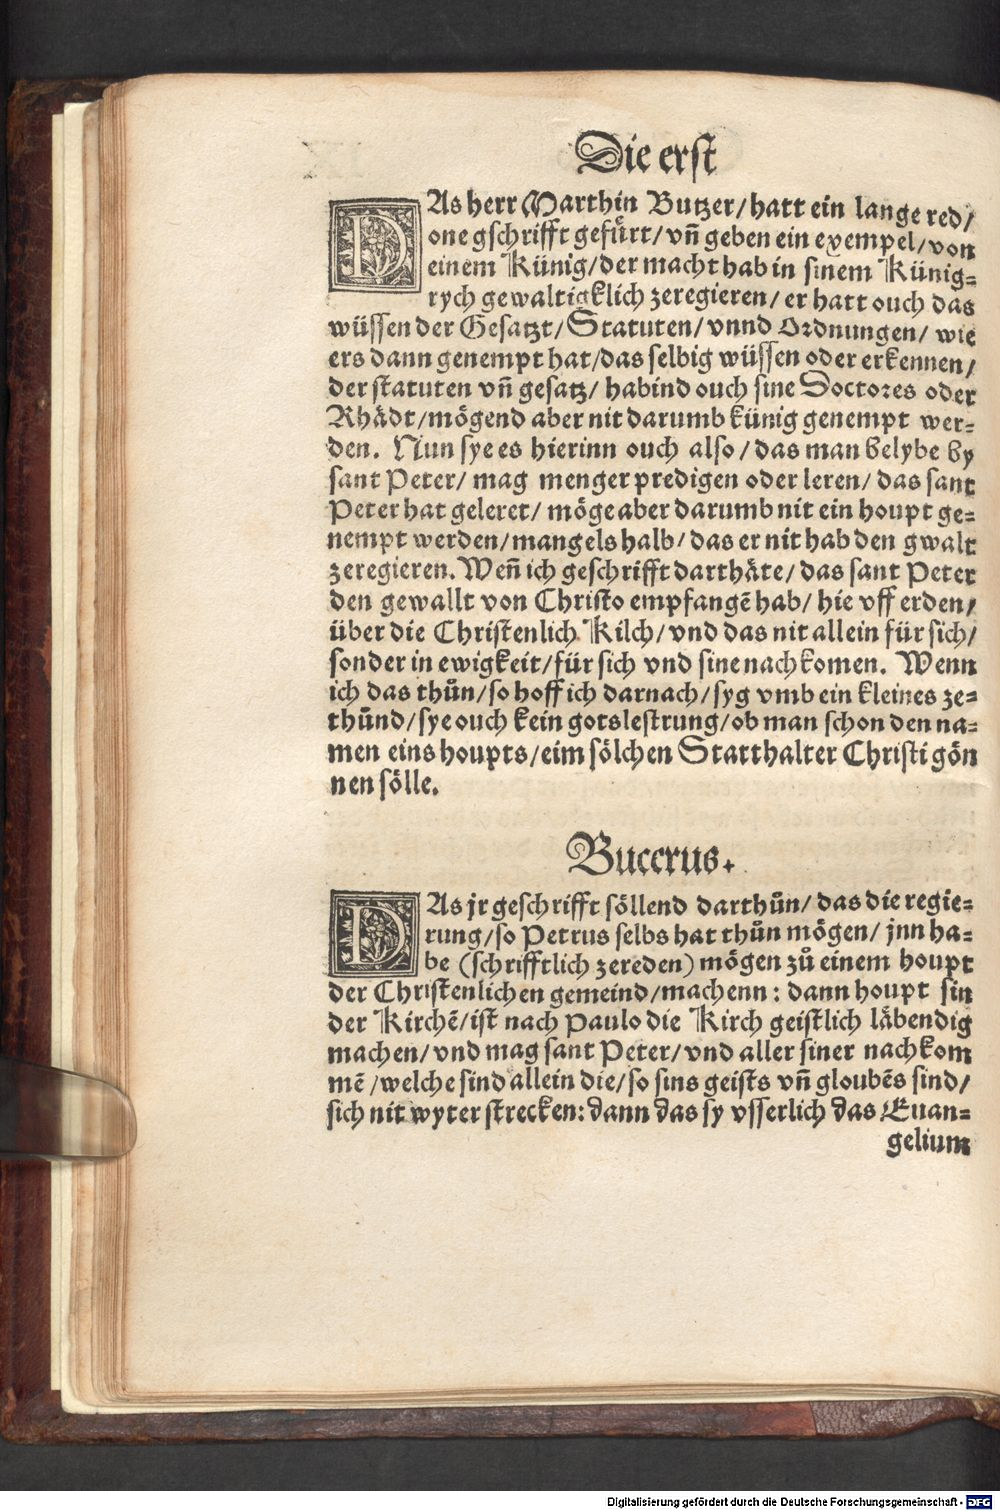 Die erst
DAs herr Marthin Butzer/hatt ein lange red/
one gschrifft gefürt/vñ geben ein exempel/von
einem Künig/der macht hab in sinem Künig-
rych gewaltigklich zeregieren/er hatt ouch das
wüssen der Gesatzt/Statuten/vnnd Ordnungen/wie
ers dann genempt hat/das selbig wüssen oder erkennen/
der statuten vñ gesatz/habind ouch sine Doctores oder
Rhädt/mögend aber nit darumb künig genempt wer-
den. Nun sye es hierinn ouch also/das man belybe by
sant Peter/mag menger predigen oder leren/das sant
Peter hat geleret/möge aber darumb nit ein houpt ge-
nempt werden/mangels halb/das er nit hab den gwalt
zeregieren. Weñ ich geschrifft darthäte/das sant Peter
den gewallt von Christo empfangē hab/hie vff erden/
über die Christenlich Kilch/vnd das nit allein für sich/
sonder in ewigkeit/für sich vnd sine nachkomen. Wenn
ich das thůn/so hoff ich darnach/syg vmb ein kleines ze-
thůnd/sye ouch kein gotslestrung/ob man schon den na-
men eins houpts/eim sölchen Statthalter Christi gön
nen sölle.
Bucerus.
DAs jr geschrifft söllend darthůn/das die regie-
rung/so Petrus selbs hat thůn mögen/jnn ha-
be (schrifftlich zereden) mögen zů einem houpt
der Christenlichen gemeind/machenn: dann houpt sin
der Kirchē/ist nach Paulo die Kirch geistlich läbendig
machen/vnd mag sant Peter/vnd aller siner nachkom
mē/welche sind allein die/so sins geists vñ gloubēs sind/
sich nit wyter strecken: dann das sy vsserlich das Euan-
gelium
Digitalisierung gefördert durch die Deutsche Forschungsgemeinschaft - DFG